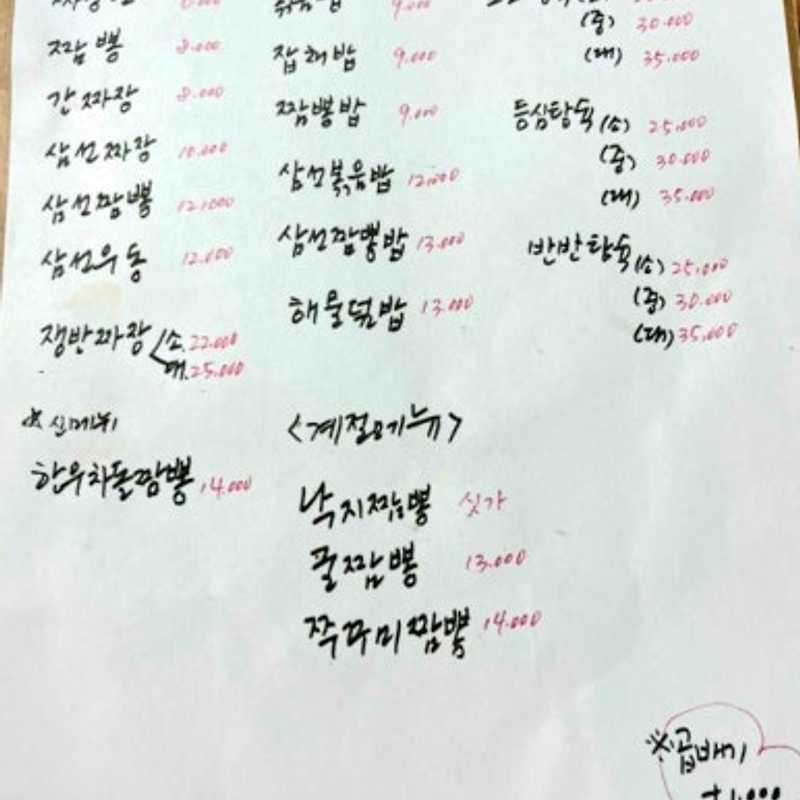 짬뽕 8.000
간짜장 8.000
삼선짜장 10.000
삼선짬뽕 12.000
삼선우동 12.000
쟁반짜장 소.22.000
대.25.000
※ 신메뉴
한우차돌짬뽕 14.000
9.000
잡채밥 9.000
짬뽕밥 9.000
삼선볶음밥 12.000
삼선짬뽕밥 13.000
해물덮밥 13.000
<계절메뉴>
낙지짬뽕 싯가
굴짬뽕 13.000
쭈꾸미짬뽕 14.000
(중) 30.000
(대) 35.000
등심탕슉 (소) 25.000
(중) 30.000
(대) 35.000
반반탕슉 (소) 25.000
(중) 30.000
(대) 35.000
※곱배기